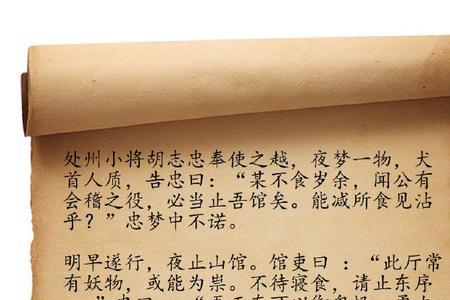 处州小将胡志忠奉使之越，夜梦一物，犬
首人质，告忠曰：“某不食岁余，闻公有
会稽之役，必当止吾馆矣。能减所食见沾
乎？”忠梦中不诺。
明早遂行，夜止山馆。馆吏曰：“此厅常
有妖物，或能为祟。不待寝食，请止东序